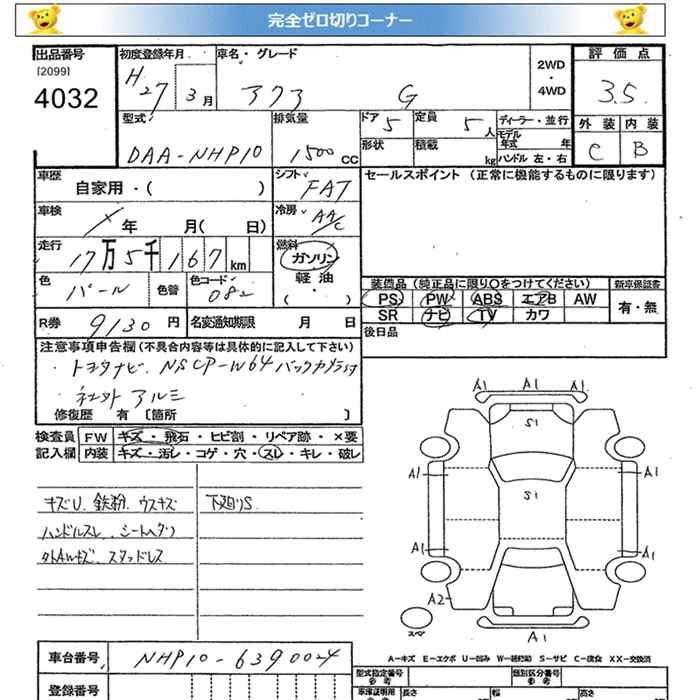 完全ゼロ切りコーナー
出品番号 初度登録年月 車名・グレード 2WD ・ 4WD 評価点
[2099]
4032 H27 3月 アクア G 3.5
型式 排気量 ドア 5 定員 5人 ディーラー・並行 外装 内装
DAA-NHP10 1500cc 形状 積載 kg モデル年式 年 C B
ハンドル 左・右
車歴 シフト FAT セールスポイント (正常に機能するものに限ります)
自家用・( )
車検 年 月( 日) 冷房 AAC
走行 17万5千167km 燃料 ガソリン
軽油
・( )
色 パール 色替 色コード 082
装備品 (純正品に限り○をつけてください) 新車保証書
PS PW ABS エアB AW 有・無
SR ナビ TV カワ
R券 9130円 名変通知期限 月 日 後日品
注意事項申告欄 (不具合内容等は具体的に記入して下さい)
トヨタナビ. NSCP-W64 バックカメラ付
社外アルミ
修復歴 有 〔箇所 〕
検査員 FW キズ・飛石・ヒビ割・リペア跡・×要
記入欄 内装 キズ・汚レ・コゲ・穴・スレ・キレ・破レ
A1 A1 A1
S1
A1 A1
S1
A1 A1
A2
A1
スペア
キズU. 鉄粉. ウスキズ 下廻りS.
ハンドルスレ. シートヘタリ
外AWキズ. スタッドレス
A-キズ E-エクボ U-凹み W-補修跡 S-サビ C-腐食 XX-交換済
車台番号 NHP10-6390024
型式指定番号 参考 類別区分番号 参考
登録番号 車庫証明用 長さ 幅 高さ